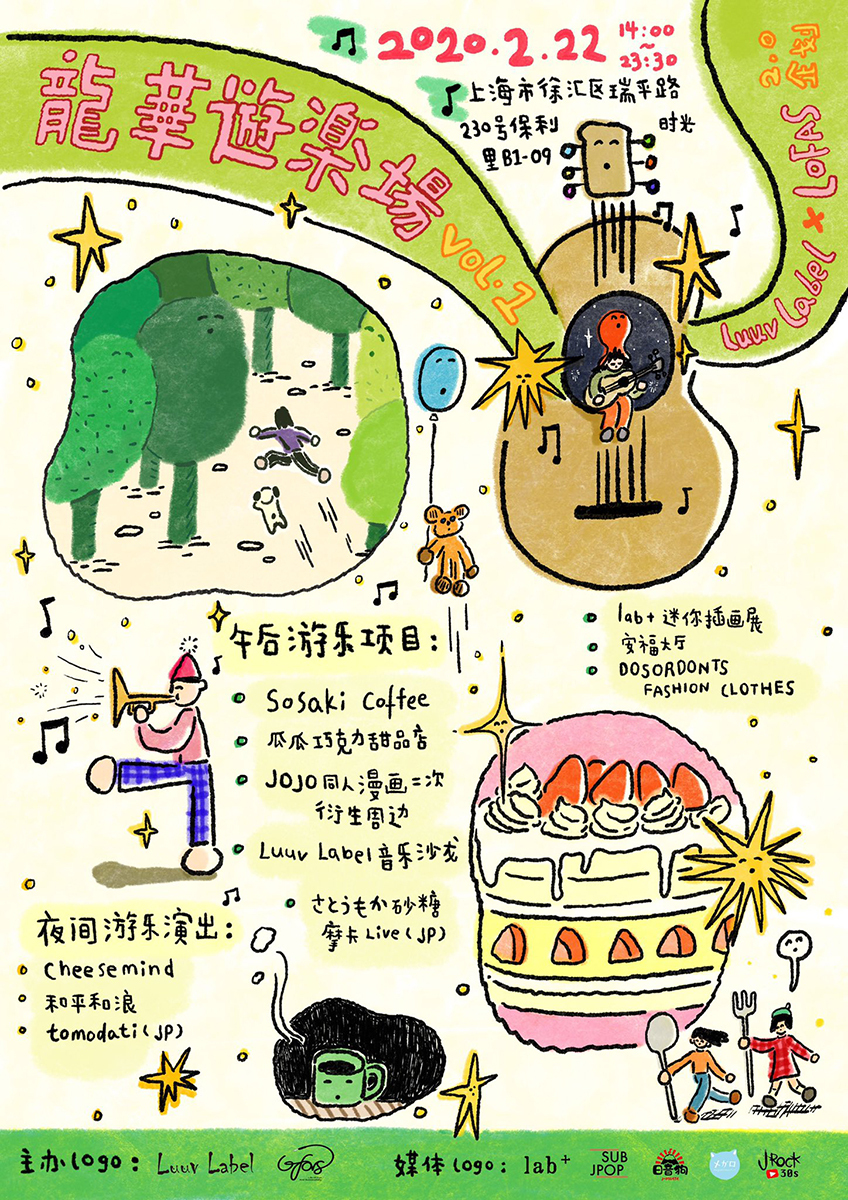 2020.2.22
14:00
~
23:30
上海市徐汇区瑞平路
230号保利 时光
里B1-09
龍華遊楽場
vol.1
Luuv Label × LOFAS
2.0
企划
午后游乐项目:
Sosaki Coffee
瓜瓜巧克力甜品店
JOJO同人漫画二次
衍生周边
Luuv Label音乐沙龙
さとうもか砂糖
摩卡Live(JP)
lab+迷你插画展
安福大厅
DOSORDONTS
FASHION CLOTHES
夜间游乐演出:
cheesemind
和平和浪
tomodati(JP)
主办logo:
Luuv Label
媒体logo:
lab+
SUB
JPOP
日音狗
メガロ
JROCK
30s